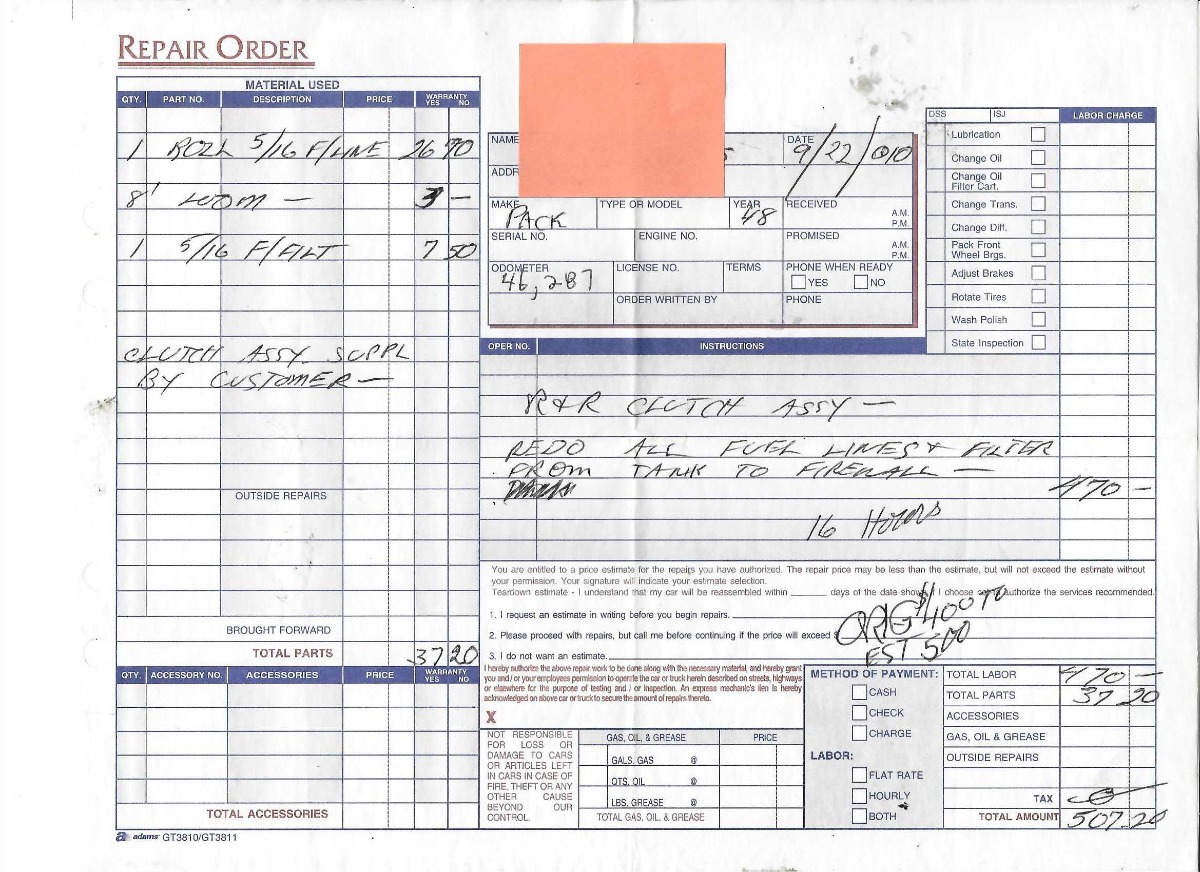 REPAIR ORDER
MATERIAL USED
QTY. PART NO. DESCRIPTION PRICE WARRANTY YES NO
1 ROLL 5/16 F/LINE 26 70
8' LOOM — 3 —
1 5/16 F/FILT 7 50
CLUTCH ASSY SUPPL
BY CUSTOMER —
OUTSIDE REPAIRS
BROUGHT FORWARD
TOTAL PARTS 37 20
QTY. ACCESSORY NO. ACCESSORIES PRICE WARRANTY YES NO
TOTAL ACCESSORIES
adams GT3810/GT3811
NAME DATE 9/22/010
ADDR
MAKE PACK TYPE OR MODEL YEAR 48 RECEIVED A.M. P.M.
SERIAL NO. ENGINE NO. PROMISED A.M. P.M.
ODOMETER 46,287 LICENSE NO. TERMS PHONE WHEN READY YES NO
ORDER WRITTEN BY PHONE
DSS ISJ LABOR CHARGE
Lubrication
Change Oil
Change Oil Filter Cart.
Change Trans.
Change Diff.
Pack Front Wheel Brgs.
Adjust Brakes
Rotate Tires
Wash Polish
State Inspection
OPER NO. INSTRUCTIONS
R&R CLUTCH ASSY —
REDO ALL FUEL LINES & FILTER
FROM TANK TO FIREWALL —
470 —
16 HOURS
You are entitled to a price estimate for the repairs you have authorized. The repair price may be less than the estimate, but will not exceed the estimate without
your permission. Your signature will indicate your estimate selection.
Teardown estimate - I understand that my car will be reassembled within ______ days of the date shown if I choose not to authorize the services recommended.
1. I request an estimate in writing before you begin repairs.
2. Please proceed with repairs, but call me before continuing if the price will exceed $
ORIG $400 TO
EST 500
3. I do not want an estimate.
I hereby authorize the above repair work to be done along with the necessary material, and hereby grant
you and / or your employees permission to operate the car or truck herein described on streets, highways
or elsewhere for the purpose of testing and / or inspection. An express mechanic's lien is hereby
acknowledged on above car or truck to secure the amount of repairs thereto.
X
NOT RESPONSIBLE
FOR LOSS OR
DAMAGE TO CARS
OR ARTICLES LEFT
IN CARS IN CASE OF
FIRE, THEFT OR ANY
OTHER CAUSE
BEYOND OUR
CONTROL.
GAS, OIL, & GREASE PRICE
GALS. GAS @
QTS. OIL @
LBS. GREASE @
TOTAL GAS, OIL, & GREASE
METHOD OF PAYMENT:
CASH
CHECK
CHARGE
LABOR:
FLAT RATE
HOURLY
BOTH
TOTAL LABOR 470 —
TOTAL PARTS 37 20
ACCESSORIES
GAS, OIL & GREASE
OUTSIDE REPAIRS
TAX 0
TOTAL AMOUNT 507.20